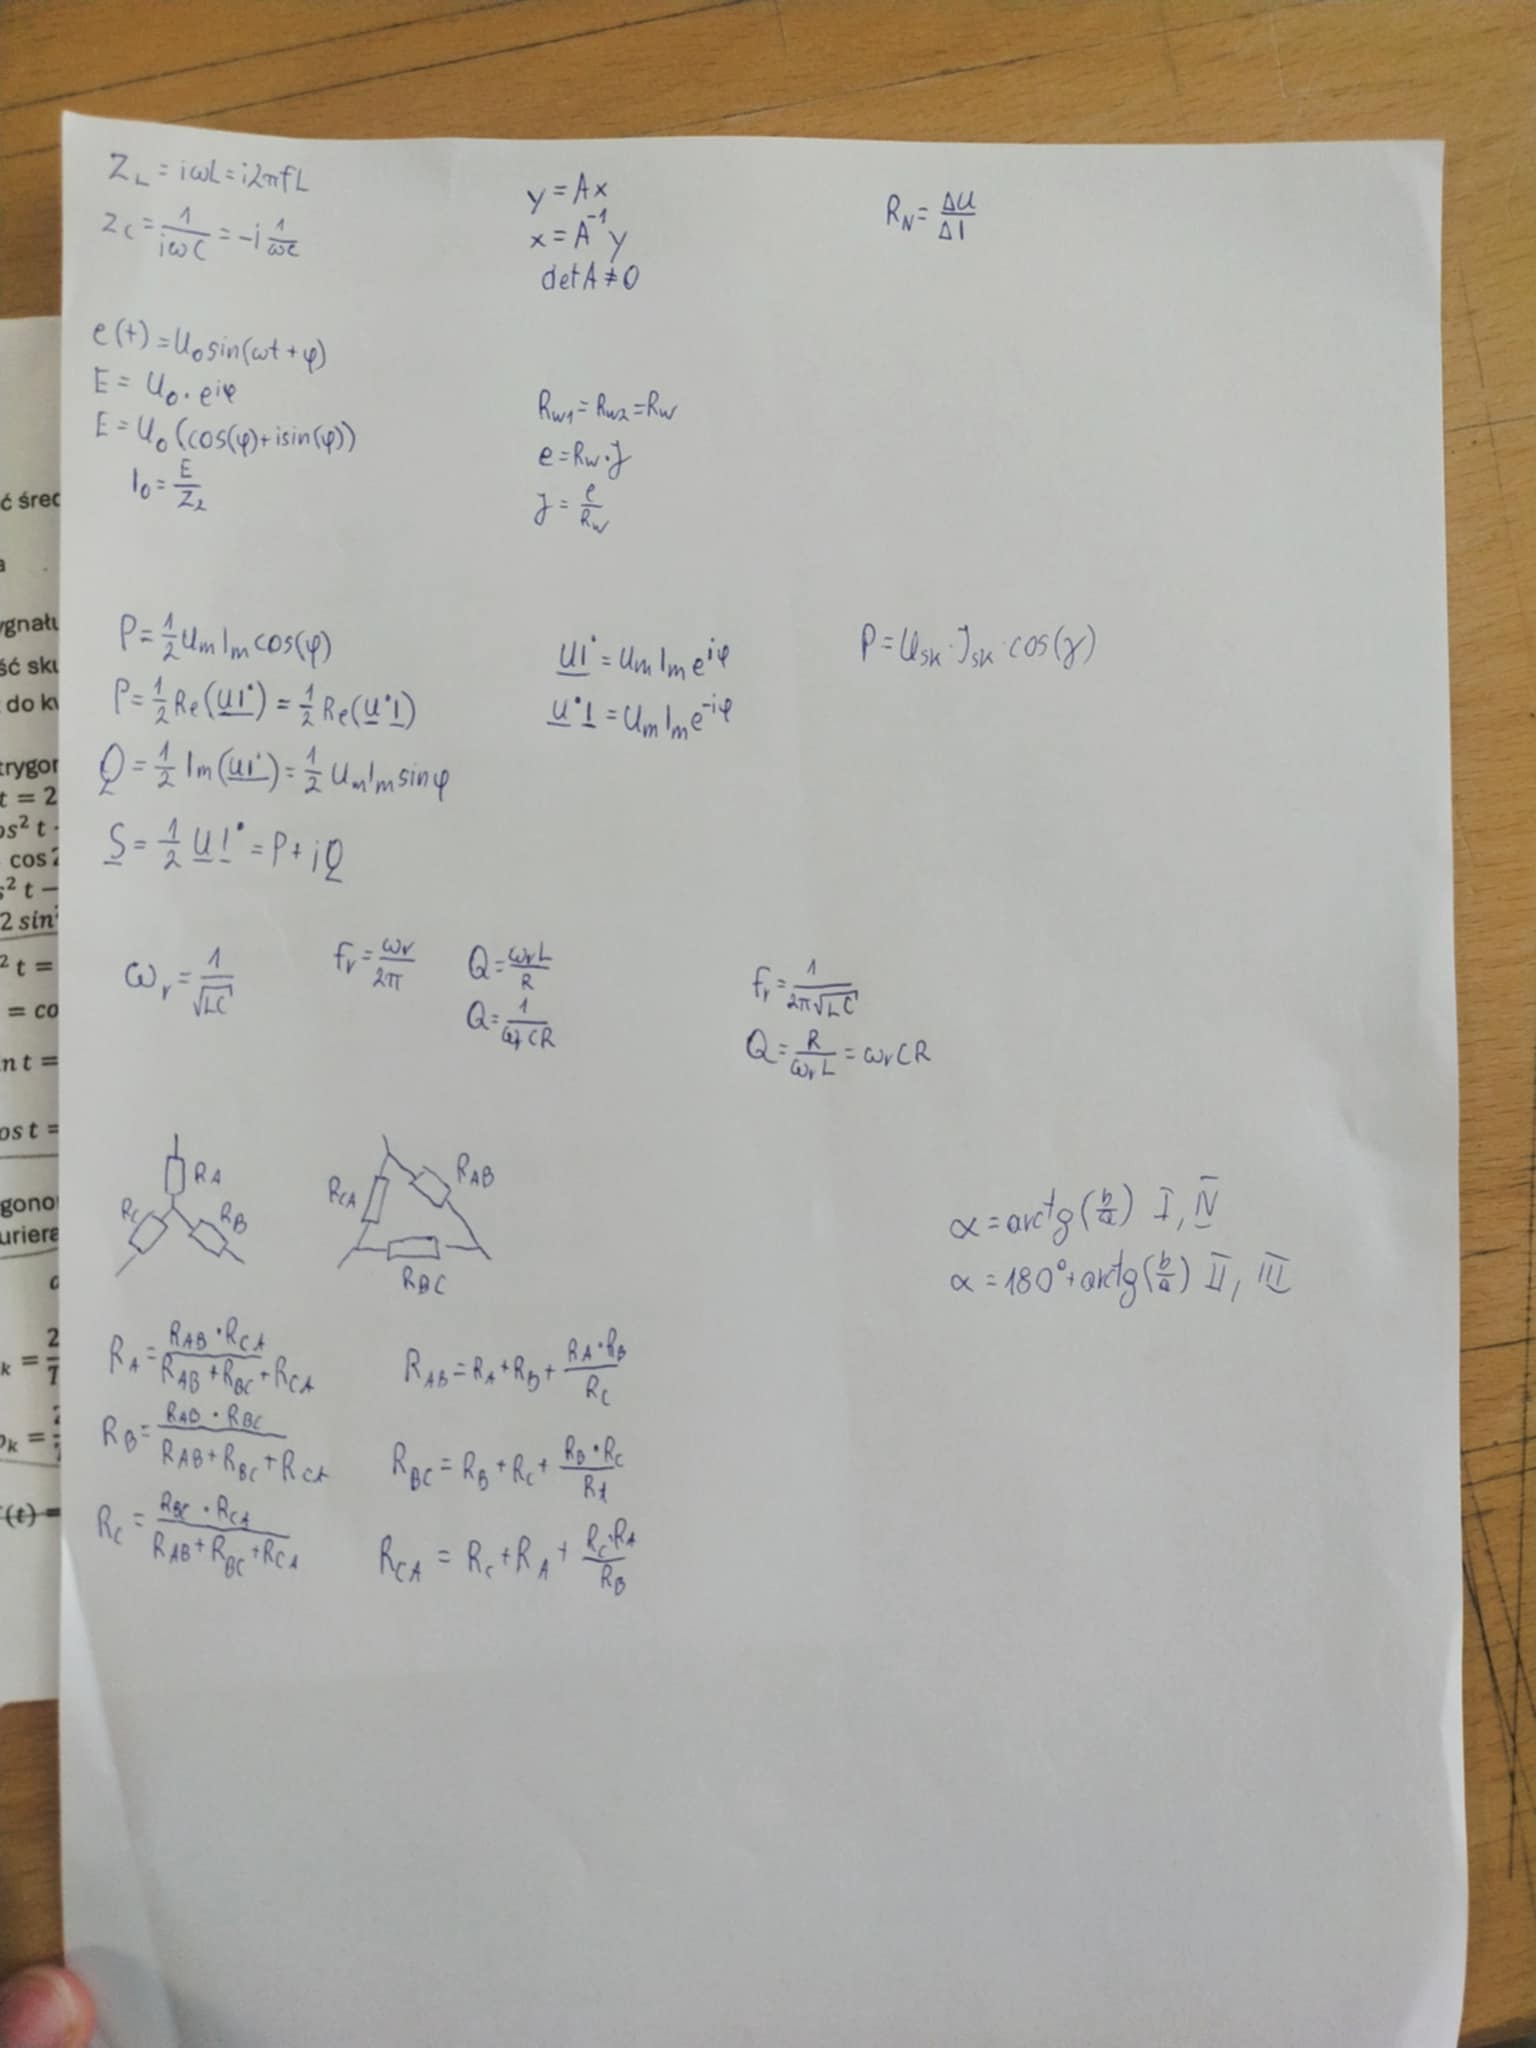 Z_L = iωL = i2πfL
Z_C = 1/(iωC) = -i 1/(ωC)
y = Ax
x = A^-1 y
det A ≠ 0
R_N = ΔU/ΔI
e(t) = U_0 sin(ωt + φ)
E = U_0 · e^iφ
E = U_0 (cos(φ) + isin(φ))
I_0 = E/Z_2
R_W1 = R_W2 = R_W
e = R_W · J
J = e/R_W
P = 1/2 U_m I_m cos(φ)
P = 1/2 Re(UI*) = 1/2 Re(U*I)
Q = 1/2 Im(UI*) = 1/2 U_m I_m sinφ
S = 1/2 UI* = P + iQ
UI* = U_m I_m e^iφ
U*I = U_m I_m e^-iφ
P = U_SK · J_SK · cos(γ)
ω_r = 1/√LC
f_r = ω_r/2π
Q = ω_r L/R
Q = 1/(ω_r CR)
f_r = 1/(2π√LC)
Q = R/(ω_r L) = ω_r CR
R_A
R_C
R_B
R_CA
R_AB
R_BC
α = arctg(b/a) I, IV
α = 180° + arctg(b/a) II, III
R_A = R_AB · R_CA/(R_AB + R_BC + R_CA)
R_B = R_AB · R_BC/(R_AB + R_BC + R_CA)
R_C = R_BC · R_CA/(R_AB + R_BC + R_CA)
R_AB = R_A + R_B + R_A · R_B/R_C
R_BC = R_B + R_C + R_B · R_C/R_A
R_CA = R_C + R_A + R_C · R_A/R_B
ć śred
a
ygnału
ść sku
do kw
trygon
t = 2
os² t -
cos 2
s² t –
2 sin
² t =
= co
n t =
os t =
gono
uriera
k = 2/T
(t) =